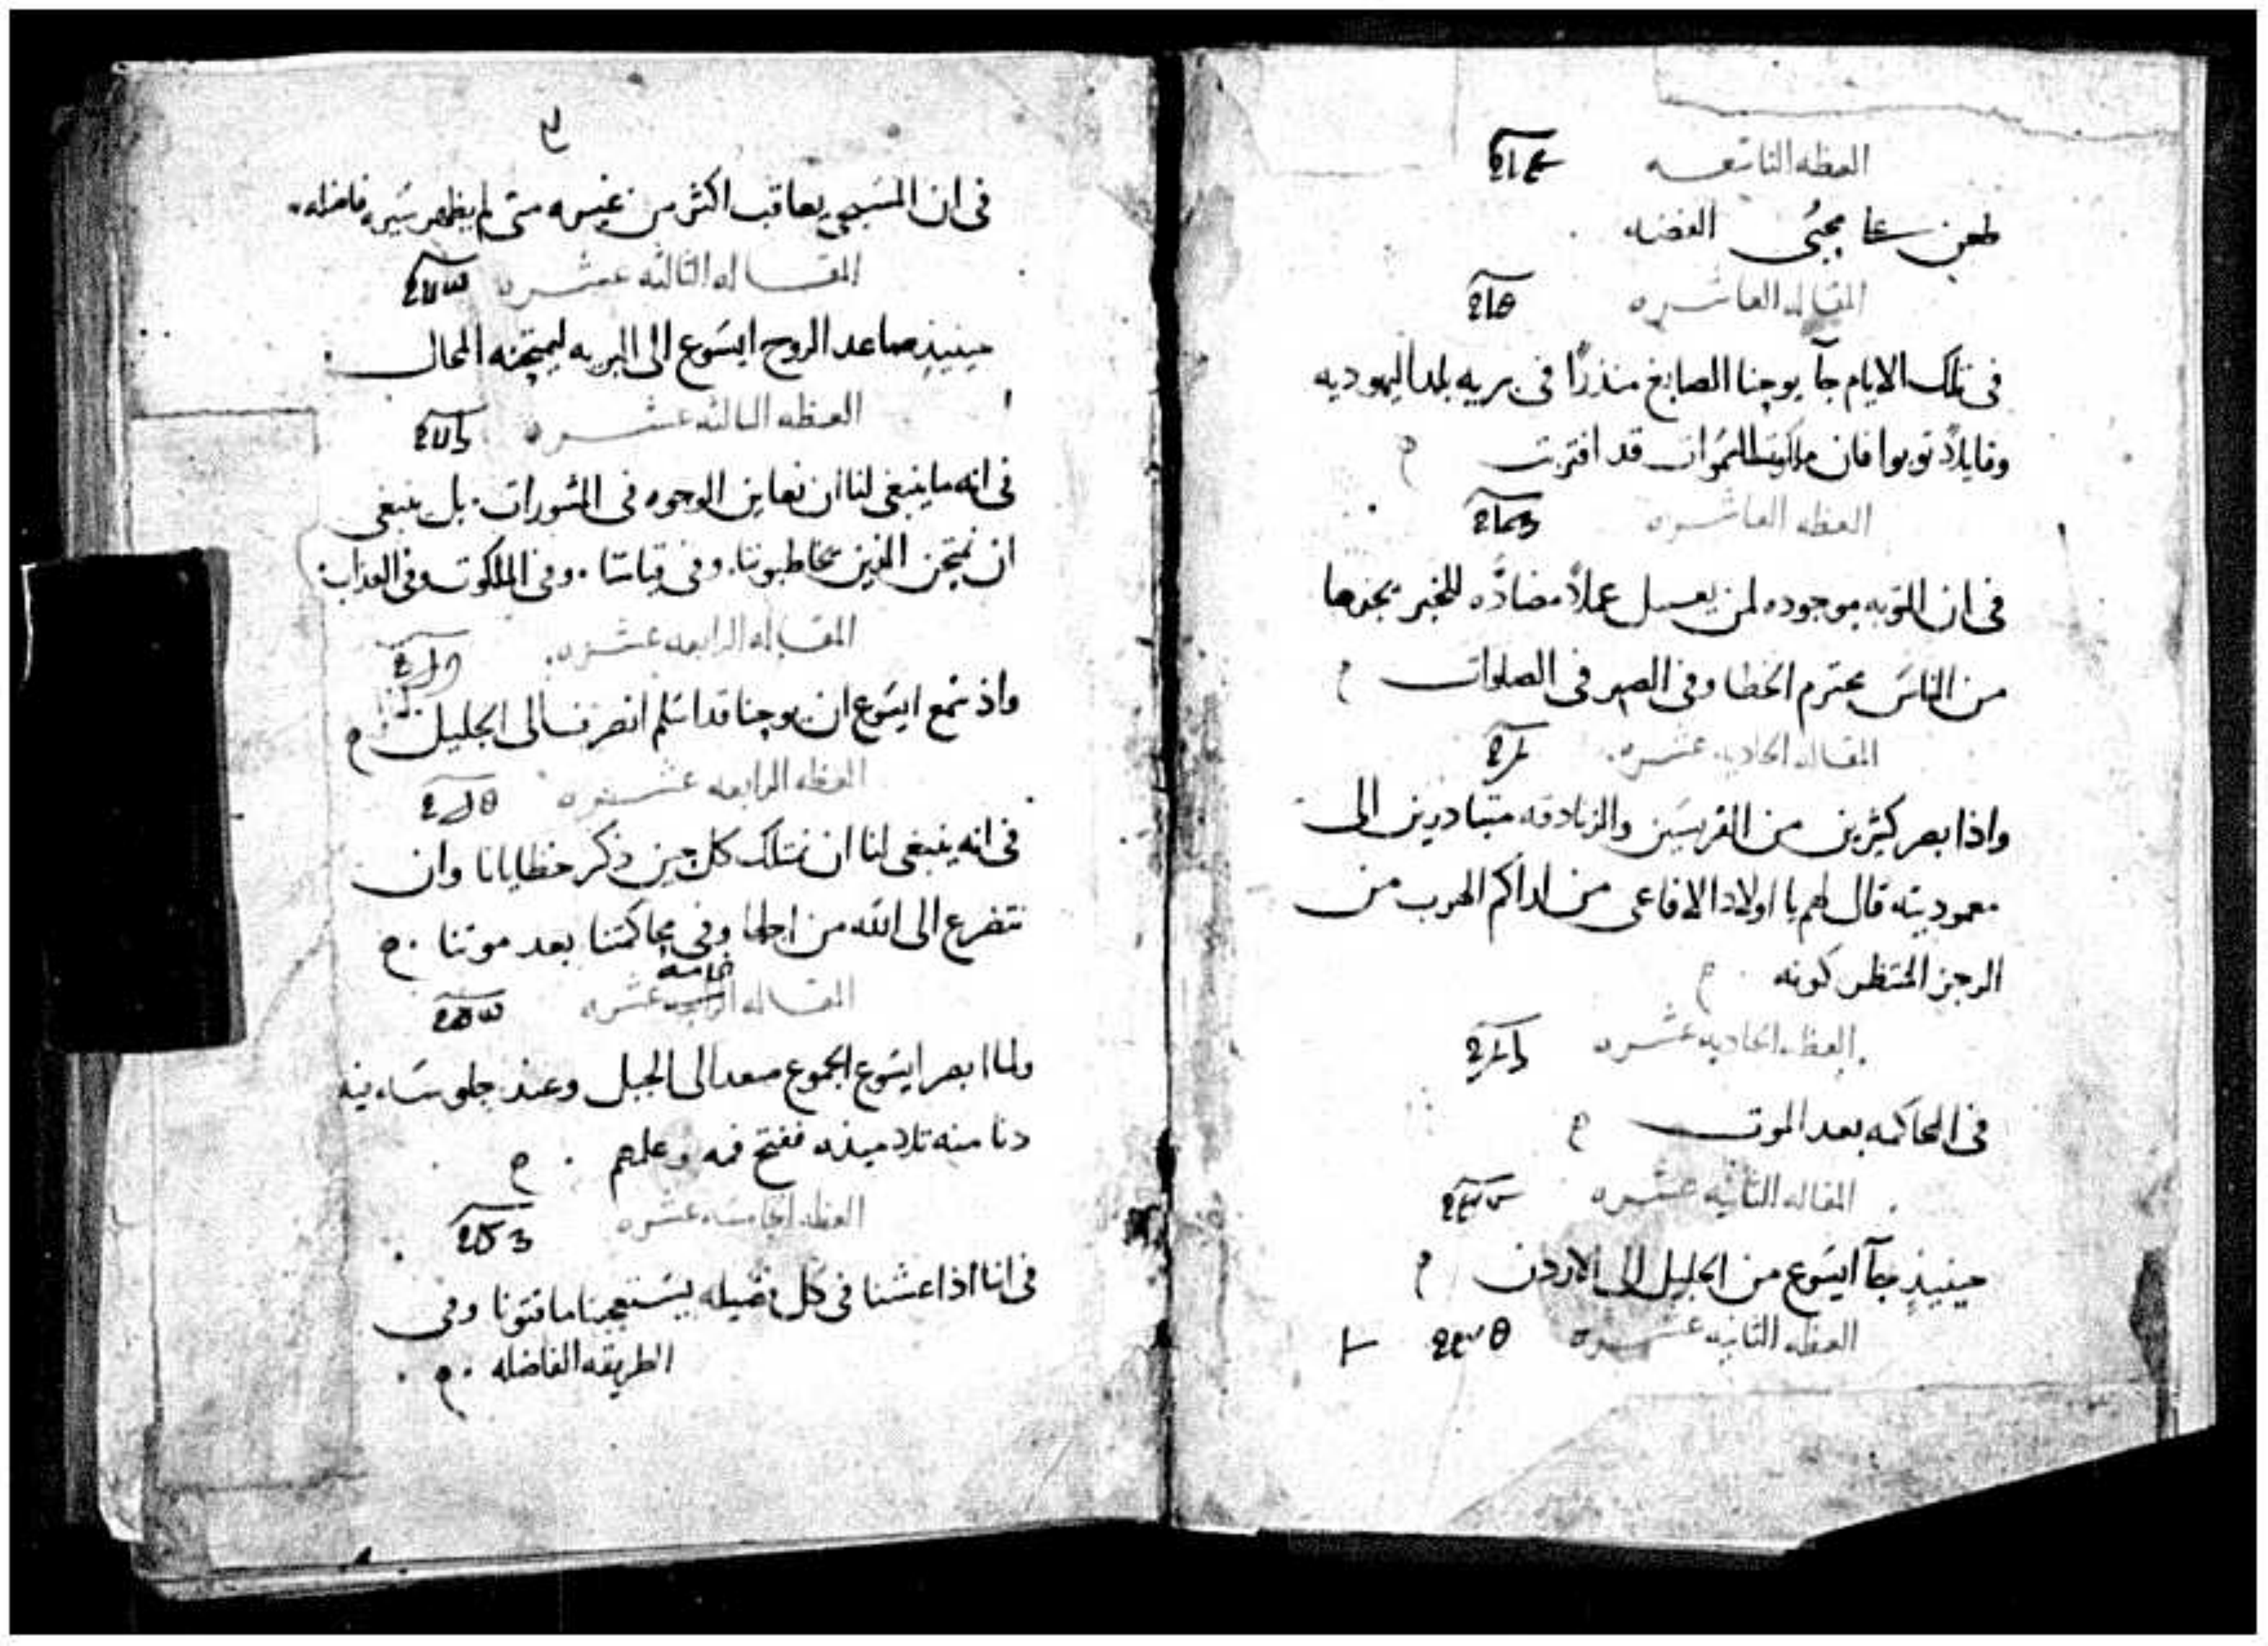 العظه التاسعه
طعن على محبى الفضه
المقاله العاشره
فى تلك الايام جآ يوحنا الصابغ منذرًا فى بريه بلد اليهوديه
وقايلاً توبوا فان ملكوت السموات قد اقتربت
العظه العاشره
فى ان التوبه موجوده لمن يعمل عملاً مضادًه للخير نحوها
من الناس يحترم الخطا وفى الصبر فى الصلوات
المقاله الحاديه عشره
واذا بصر كثيرين من الفريسين والزنادقه متبادرين الى
معموديته قال لهم يا اولاد الافاعى من اراكم الهرب من
الرجز المنتظر كونه
العظه الحاديه عشره
فى المحاكمه بعد الموت
المقاله الثانيه عشره
حينيذٍ جآ ايسوع من الجليل الى الاردن
العظه الثانيه عشره
فى ان المسيحى يعاقب اكثر من غيره متى لم يظهر سيره فاضله
المقاله الثالثه عشره
حينيذٍ صاعد الروح ايسوع الى البريه ليمتحنه المحال
العظه الثالثه عشره
فى انه ما ينبغى لنا ان نعاين الوجوه فى المشورات بل ينبغى
ان نمتحن الذين يخاطبوننا وفى قياسًا وفى الملكوت وفى العذاب
المقاله الرابعه عشره
واذ سمع ايسوع ان يوحنا قد اسلم انصرف الى الجليل
العظه الرابعه عشره
فى انه ينبغى لنا ان نمتلك كل حين ذكر خطايانا وان
نتضرع الى الله من اجلها وفى محاكمتنا بعد موتنا
المقاله الخامسه عشره
ولما ابصر ايسوع الجموع صعد الى الجبل وعند جلوسه
دنا منه تلاميذه ففتح فمه وعلمهم
العظه الخامسه عشره
فى انا اذا عشنا فى كل فضيله يستعجبنا ماقتونا وفى
الطريقه الفاضله